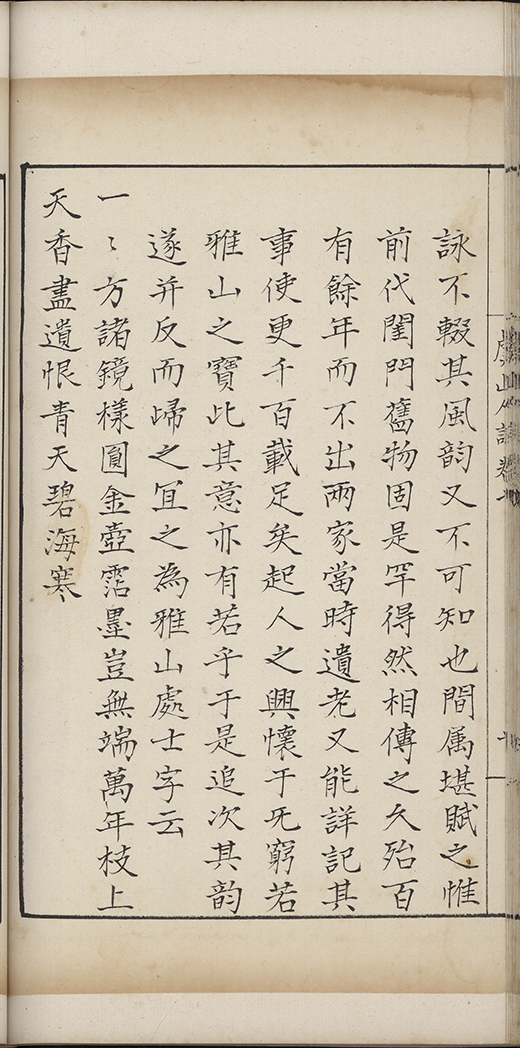 詠不輟其風韵又不可知也間属堪賦之惟
前代閨門舊物固是罕得然相傳之久殆百
有餘年而不出兩家當時遺老又能詳記其
事使更千百載足矣起人之興懷于无窮若
雅山之寶此其意亦有若乎于是追次其韵
遂并反而歸之冝之為雅山處士字云
一〻方諸鏡樣圓金壺霑墨豈無端萬年枝上
天香盡遺恨青天碧海寒